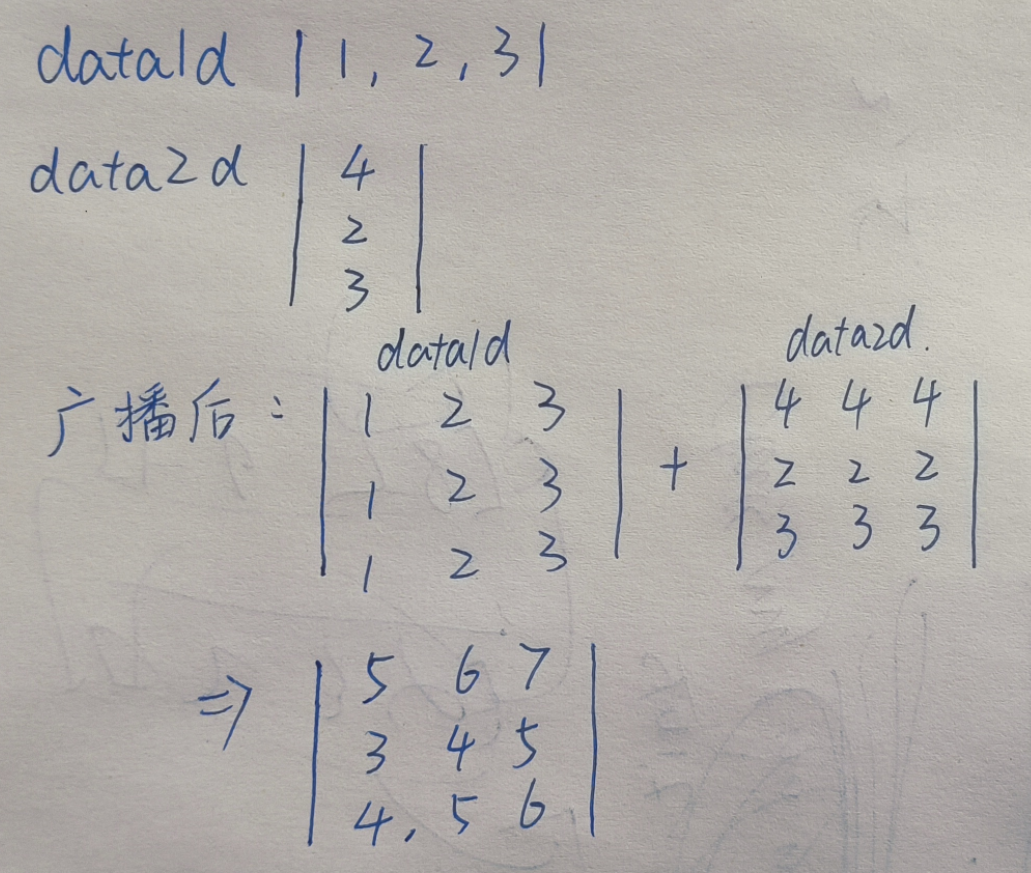 data1d | 1, 2, 3 |
data2d | 4 |
2
3
data1d data2d.
广播后: | 1 2 3 | + | 4 4 4 |
1 2 3 2 2 2
1 2 3 3 3 3
⇒ | 5 6 7 |
3 4 5
4, 5 6